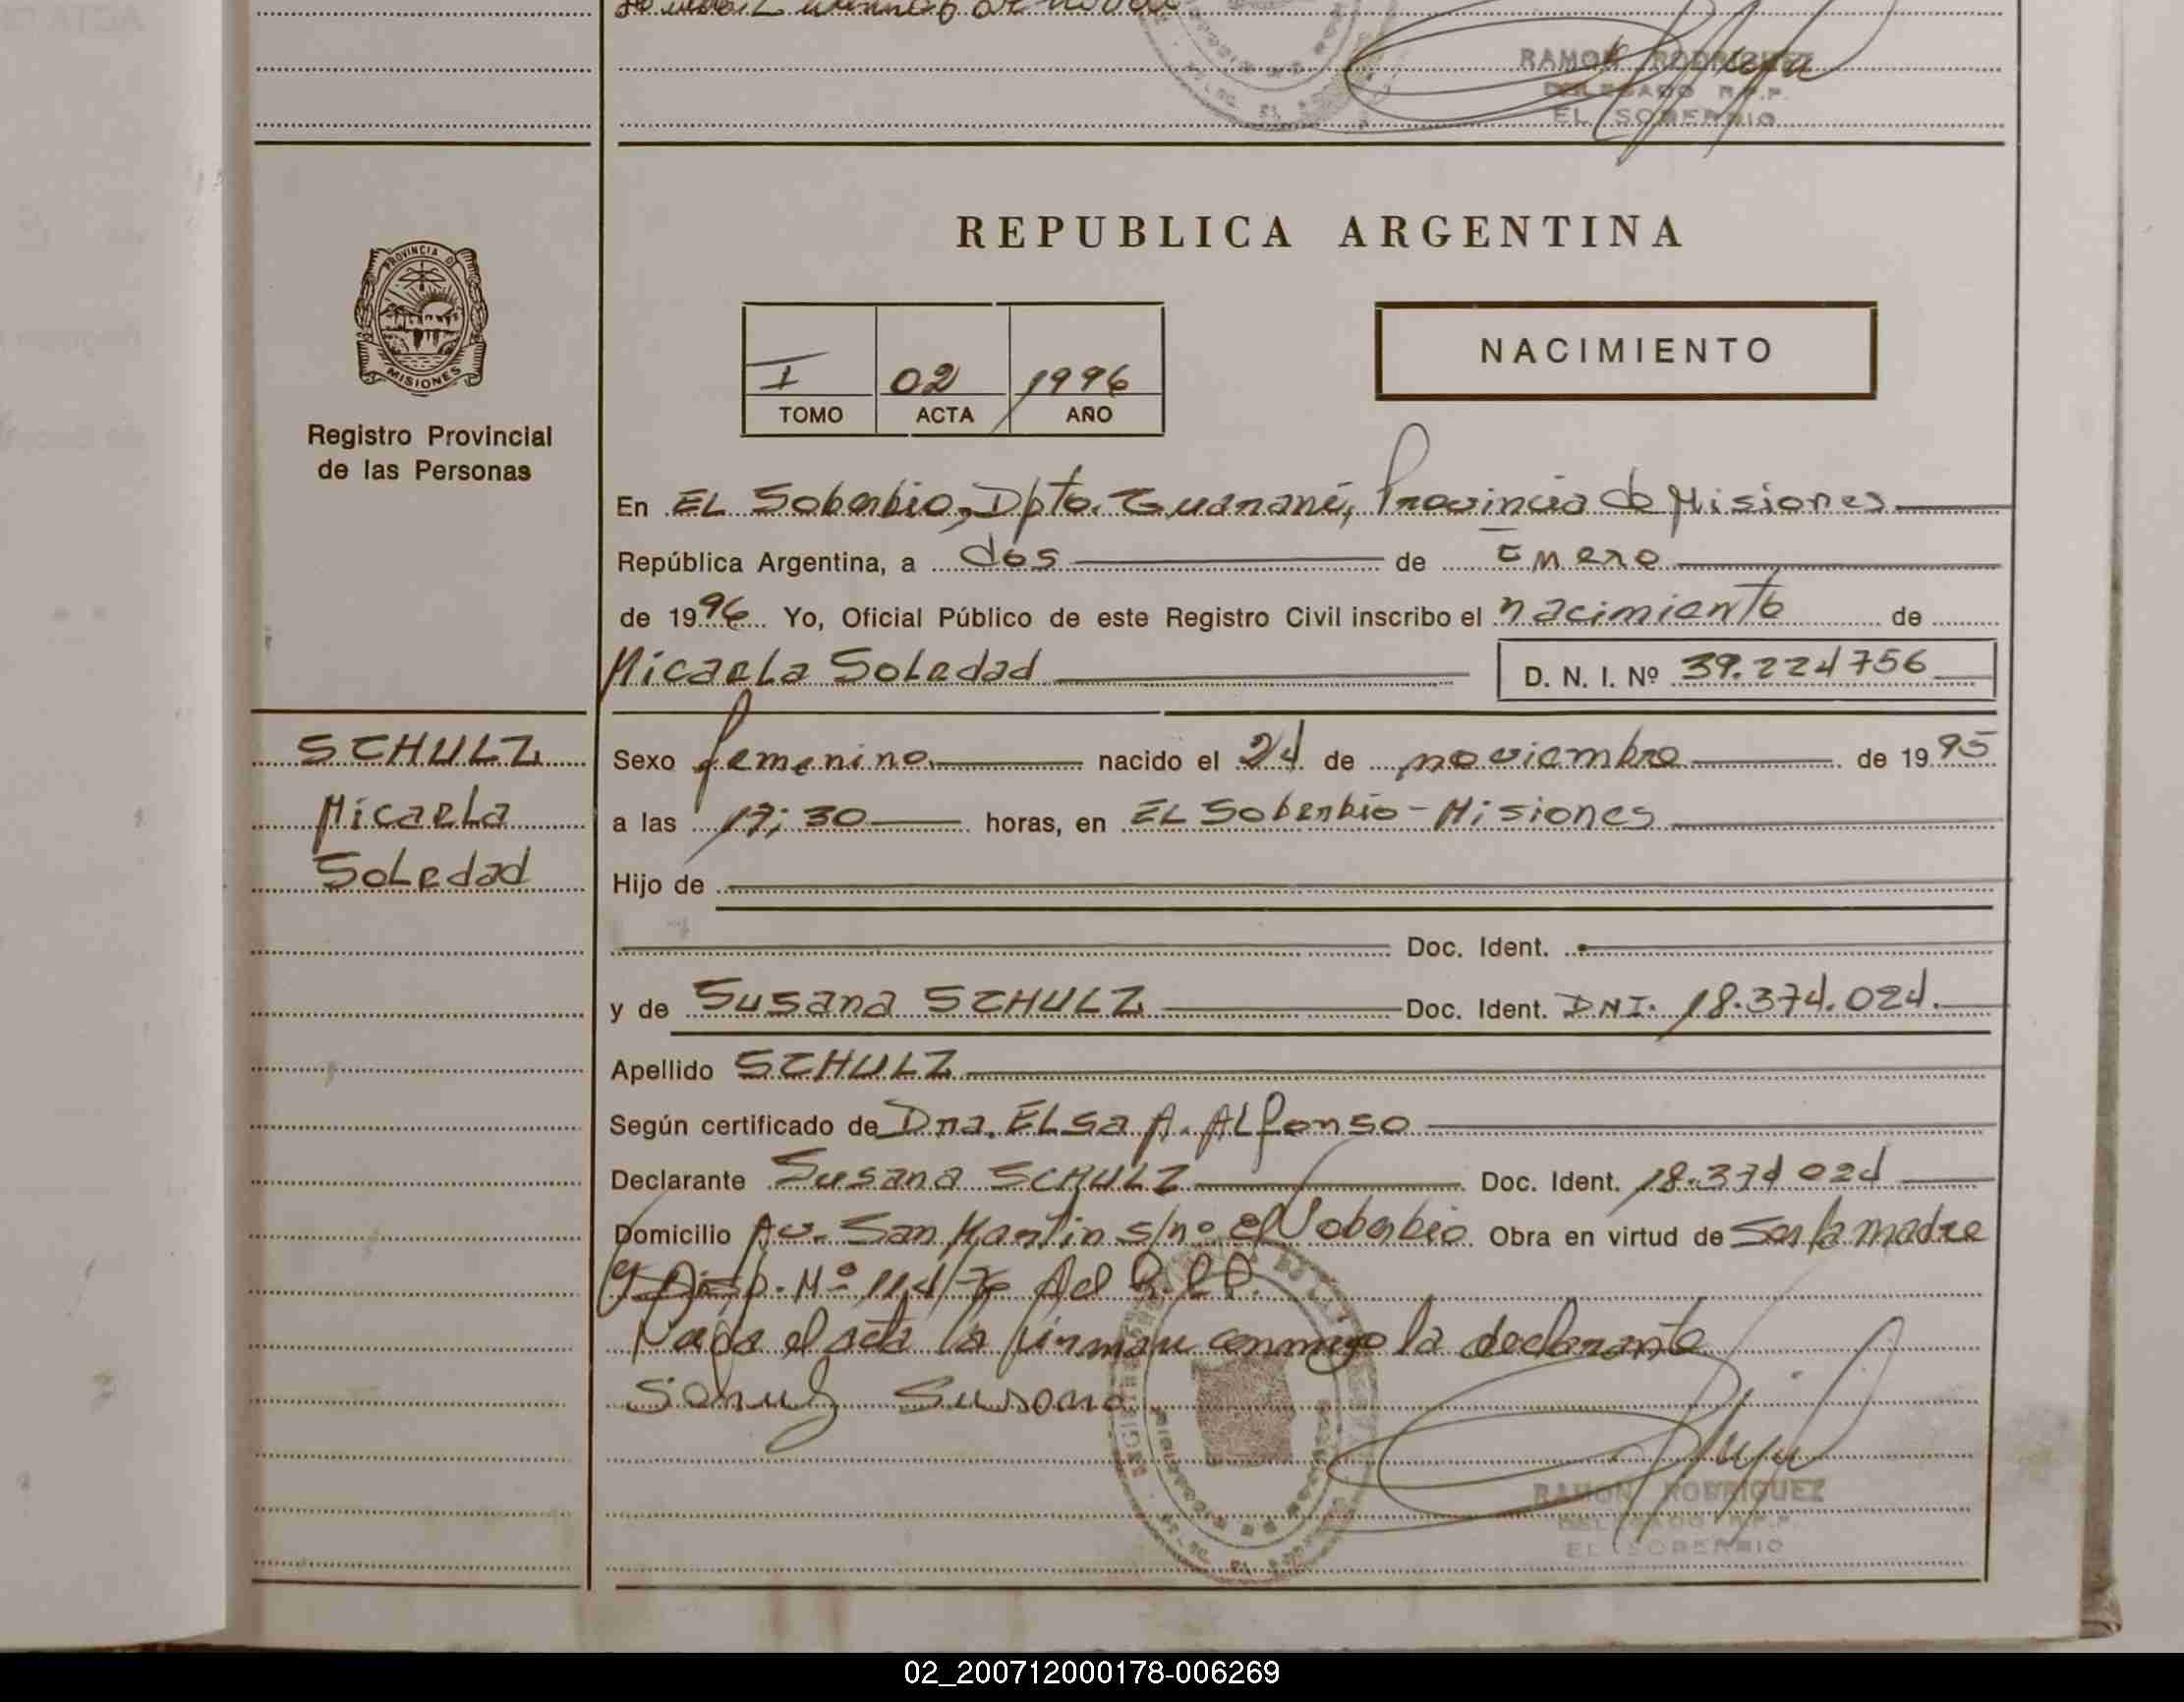 RAMON RODRIGUEZ
DELEGADO R.P.P.
EL SOBERBIO
REPUBLICA ARGENTINA
PROVINCIA DE
MISIONES
Registro Provincial
de las Personas
I 02 1996
TOMO ACTA AÑO
NACIMIENTO
En EL Soberbio, Dpto. Guaraní, Provincia de Misiones
República Argentina, a dos de Enero
de 1996 Yo, Oficial Público de este Registro Civil inscribo el nacimiento de
Micaela Soledad D. N. I. Nº 39.224756
SCHULZ
Micaela
Soledad
Sexo femenino nacido el 24 de noviembre de 1995
a las 17:30 horas, en EL Soberbio - Misiones
Hijo de
Doc. Ident.
y de Susana SCHULZ Doc. Ident. DNI. 18.374.024.
Apellido SCHULZ
Según certificado de Dra. ELsa A. ALfonso
Declarante Susana SCHULZ Doc. Ident. 18.374 024
Domicilio Av. San Martín s/nº El Soberbio Obra en virtud de Ser la madre
y Disp. Nº 114/76 del R.P.P.
el acta la firman conmigo la declarante
Schulz Susana
RAMON RODRIGUEZ
DELEGADO R.P.P.
EL SOBERBIO
02_200712000178-006269